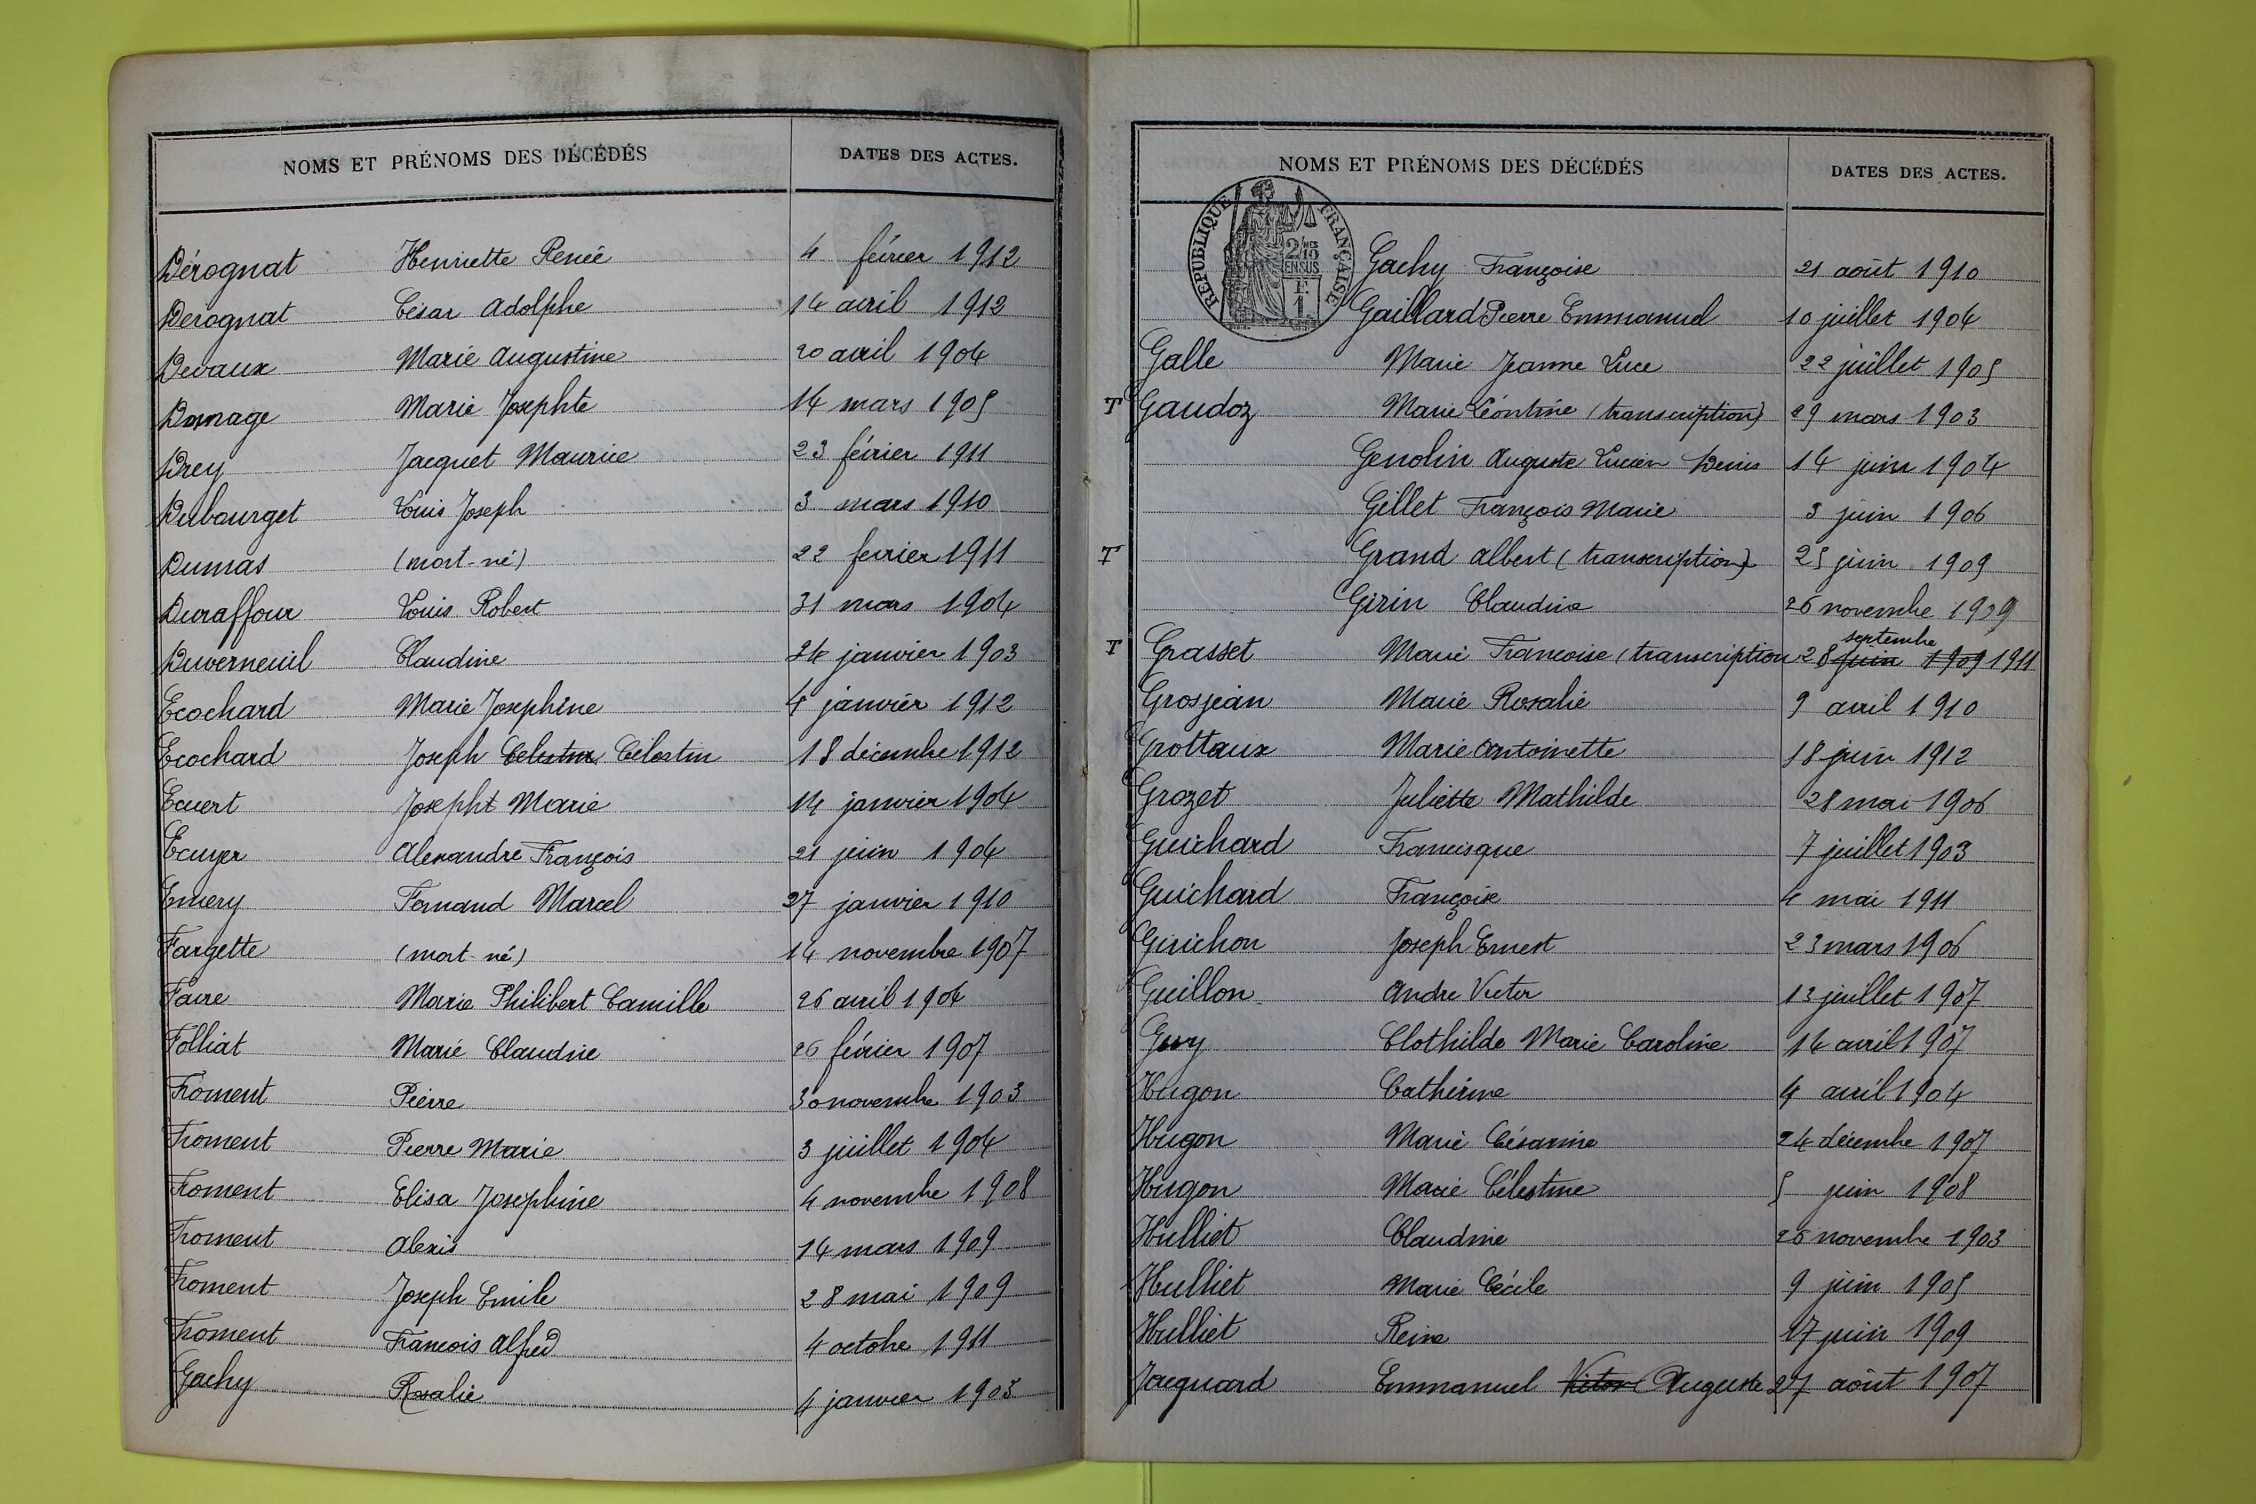 NOMS ET PRÉNOMS DES DÉCÉDÉS DATES DES ACTES.
Dérognat Henriette Renée 4 février 1912
Dérognat César Adolphe 14 avril 1912
Devaux Marie Augustine 20 avril 1904
Domage Marie Josephte 14 mars 1905
Drey Jacquet Maurice 23 février 1911
Dubourget Louis Joseph 3 mars 1910
Dumas (mort-né) 22 fevrier 1911
Duraffour Louis Robert 31 mars 1904
Duverneuil Claudine 24 janvier 1903
Ecochard Marie Josephine 4 janvier 1912
Ecochard Joseph Celestin Célestin 18 décembre 1912
Ecuert Josepht Marie 14 janvier 1904
Ecuyer Alexandre François 21 juin 1904
Emery Fernand Marcel 27 janvier 1910
Fargette (mort-né) 14 novembre 1907
Favre Marie Philibert Camille 26 avril 1906
Folliat Marie Claudine 26 février 1907
Froment Pierre 30 novembre 1903
Froment Pierre Marie 3 juillet 1904
Froment Elisa Josephine 4 novembre 1908
Froment Alexis 14 mars 1909
Froment Joseph Emile 28 mai 1909
Froment François Alfred 4 octobre 1911
Gachy Rosalie 4 janvier 1903
NOMS ET PRÉNOMS DES DÉCÉDÉS DATES DES ACTES.
RÉPUBLIQUE FRANÇAISE
2/10 MES
EN SUS
1 F.
Gachy Françoise 21 août 1910
Gaillard Pierre Emmanuel 10 juillet 1904
Galle Marie Jeanne Luce 22 juillet 1905
T Gaudoz Marie Léontine (transcription) 29 mars 1903
Genolin Auguste Lucien Denis 14 juin 1904
Gillet François Marie 3 juin 1906
T Grand Albert (transcription) 25 juin 1909
Girin Claudine 26 novembre 1909
septembre
T Grasset Marie Francoise (transcription 28 juin 1909 1911
Grosjean Marie Rosalie 9 avril 1910
Grottaux Marie Antoinette 18 juin 1912
Grozet Juliette Mathilde 28 mai 1906
Guichard Francisque 7 juillet 1903
Guichard Françoise 4 mai 1911
Guichon Joseph Ernest 23 mars 1906
Guillon Andre Victor 13 juillet 1907
Guy Clothilde Marie Caroline 14 avril 1907
Hugon Catherine 4 avril 1904
Hugon Marie Césarine 24 décembre 1907
Hugon Marie Célestine 5 juin 1908
Hulliet Claudine 26 novembre 1903
Hulliet Marie Cécile 9 juin 1905
Hulliet Reine 27 juin 1909
Jacquard Emmanuel Victor Auguste 27 août 1907